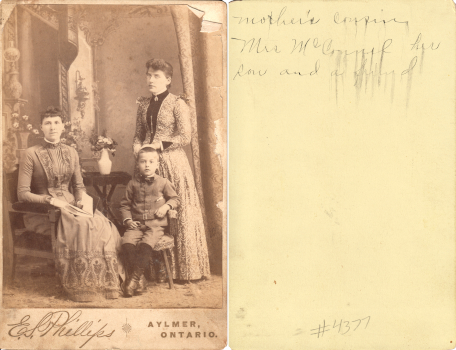 E S Phillips
AYLMER,
ONTARIO.
mother's cousin,
Mrs McConnel her
son and a friend
#4377